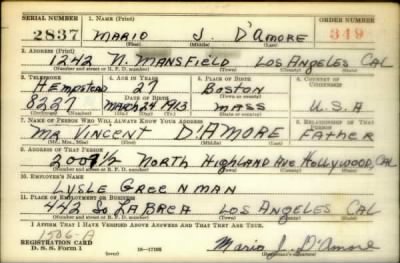 SERIAL NUMBER 1. NAME (Print) ORDER NUMBER
2837 MARIO J. D'AMORE 349
(First) (Middle) (Last)
2. ADDRESS (Print)
1242 N. MANSFIELD LOS ANGELES CAL
(Number and street or R. F. D. number) (Town) (County) (State)
3. TELEPHONE 4. AGE IN YEARS 5. PLACE OF BIRTH 6. COUNTRY OF CITIZENSHIP
HEMPSTEAD 27 BOSTON
DATE OF BIRTH (Town or county)
8227 MAR 24 1913 MASS U.S.A
(Exchange) (Number) (Mo.) (Day) (Yr.) (State or country)
7. NAME OF PERSON WHO WILL ALWAYS KNOW YOUR ADDRESS 8. RELATIONSHIP OF THAT PERSON
MR VINCENT D'AMORE FATHER
(Mr., Mrs., Miss) (First) (Middle) (Last)
9. ADDRESS OF THAT PERSON
2007½ NORTH HIGHLAND AVE HOLLYWOOD, CAL
(Number and street or R. F. D. number) (Town) (County) (State)
10. EMPLOYER'S NAME
LYSLE GREENMAN
11. PLACE OF EMPLOYMENT OR BUSINESS
442 SO LA BREA LOS ANGELES CAL
(Number and street or R. F. D. number) (Town) (County) (State)
I AFFIRM THAT I HAVE VERIFIED ABOVE ANSWERS AND THAT THEY ARE TRUE.
REGISTRATION CARD
D. S. S. Form 1 16-17105 Mario J. D'Amore